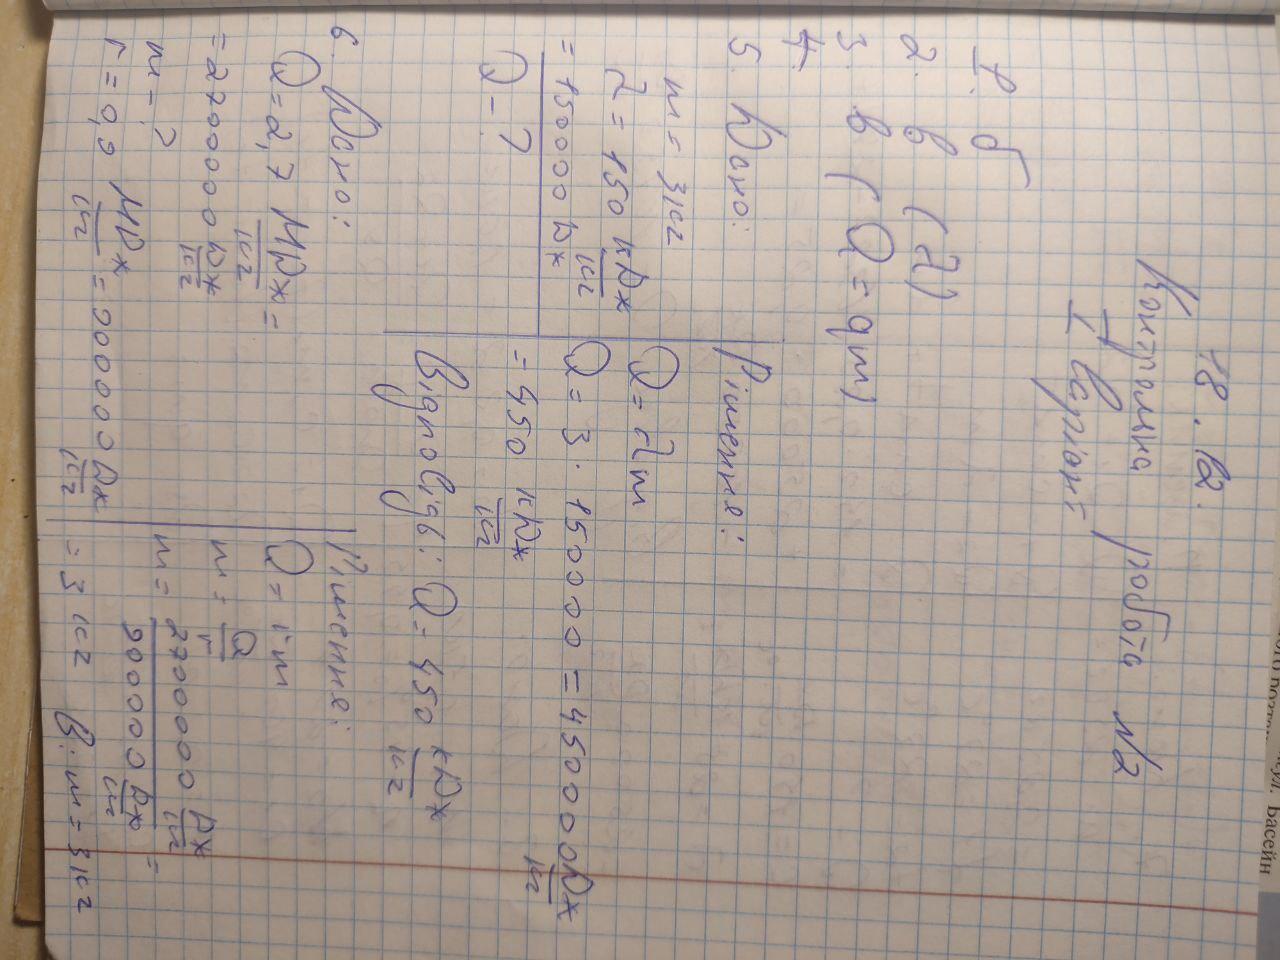 18.12.
Контрольна робота №2
I варіант
1. б
2. в (λ)
3. в (Q = qm)
4.
5. Дано:
m = 3кг
λ = 150 кДж/кг
= 150000 Дж/кг
Q - ?
Рішення:
Q = λm
Q = 3 · 150000 = 450000 Дж/кг
= 450 кДж/кг
Відповідь: Q = 450 кДж/кг
6. Дано:
Q = 2,7 МДж/кг =
= 2700000 Дж/кг
m - ?
r = 0,9 МДж/кг = 900000 Дж/кг
Рішення:
Q = rm
m = Q/r
m = 2700000 Дж/кг / 900000 Дж/кг =
= 3 кг В: m = 3кг
вул. Басейн